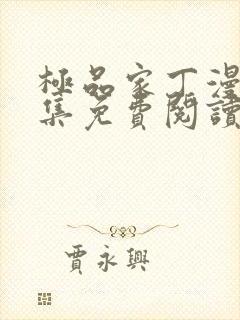 極品家丁漫
集免費閱讀
賈永興